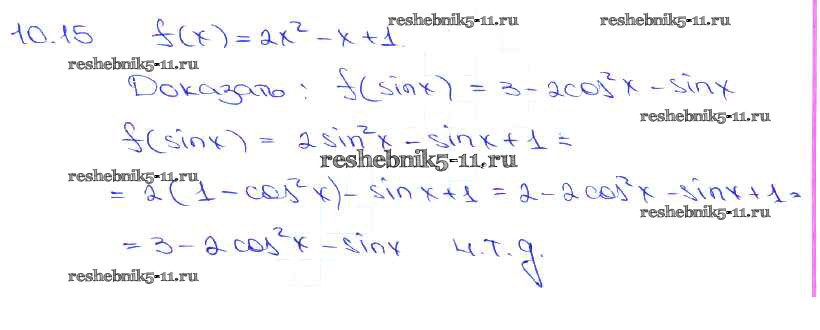 reshebnik5-11.ru reshebnik5-11.ru
10.15 f(x) = 2x² - x + 1
reshebnik5-11.ru
Доказать: f(sinx) = 3 - 2cos²x - sinx
reshebnik5-11.ru
f(sinx) = 2sin²x - sinx + 1 =
reshebnik5-11.ru
reshebnik5-11.ru
= 2(1 - cos²x) - sinx + 1 = 2 - 2cos²x - sinx + 1 =
reshebnik5-11.ru
= 3 - 2cos²x - sinx ч.т.д.
reshebnik5-11.ru